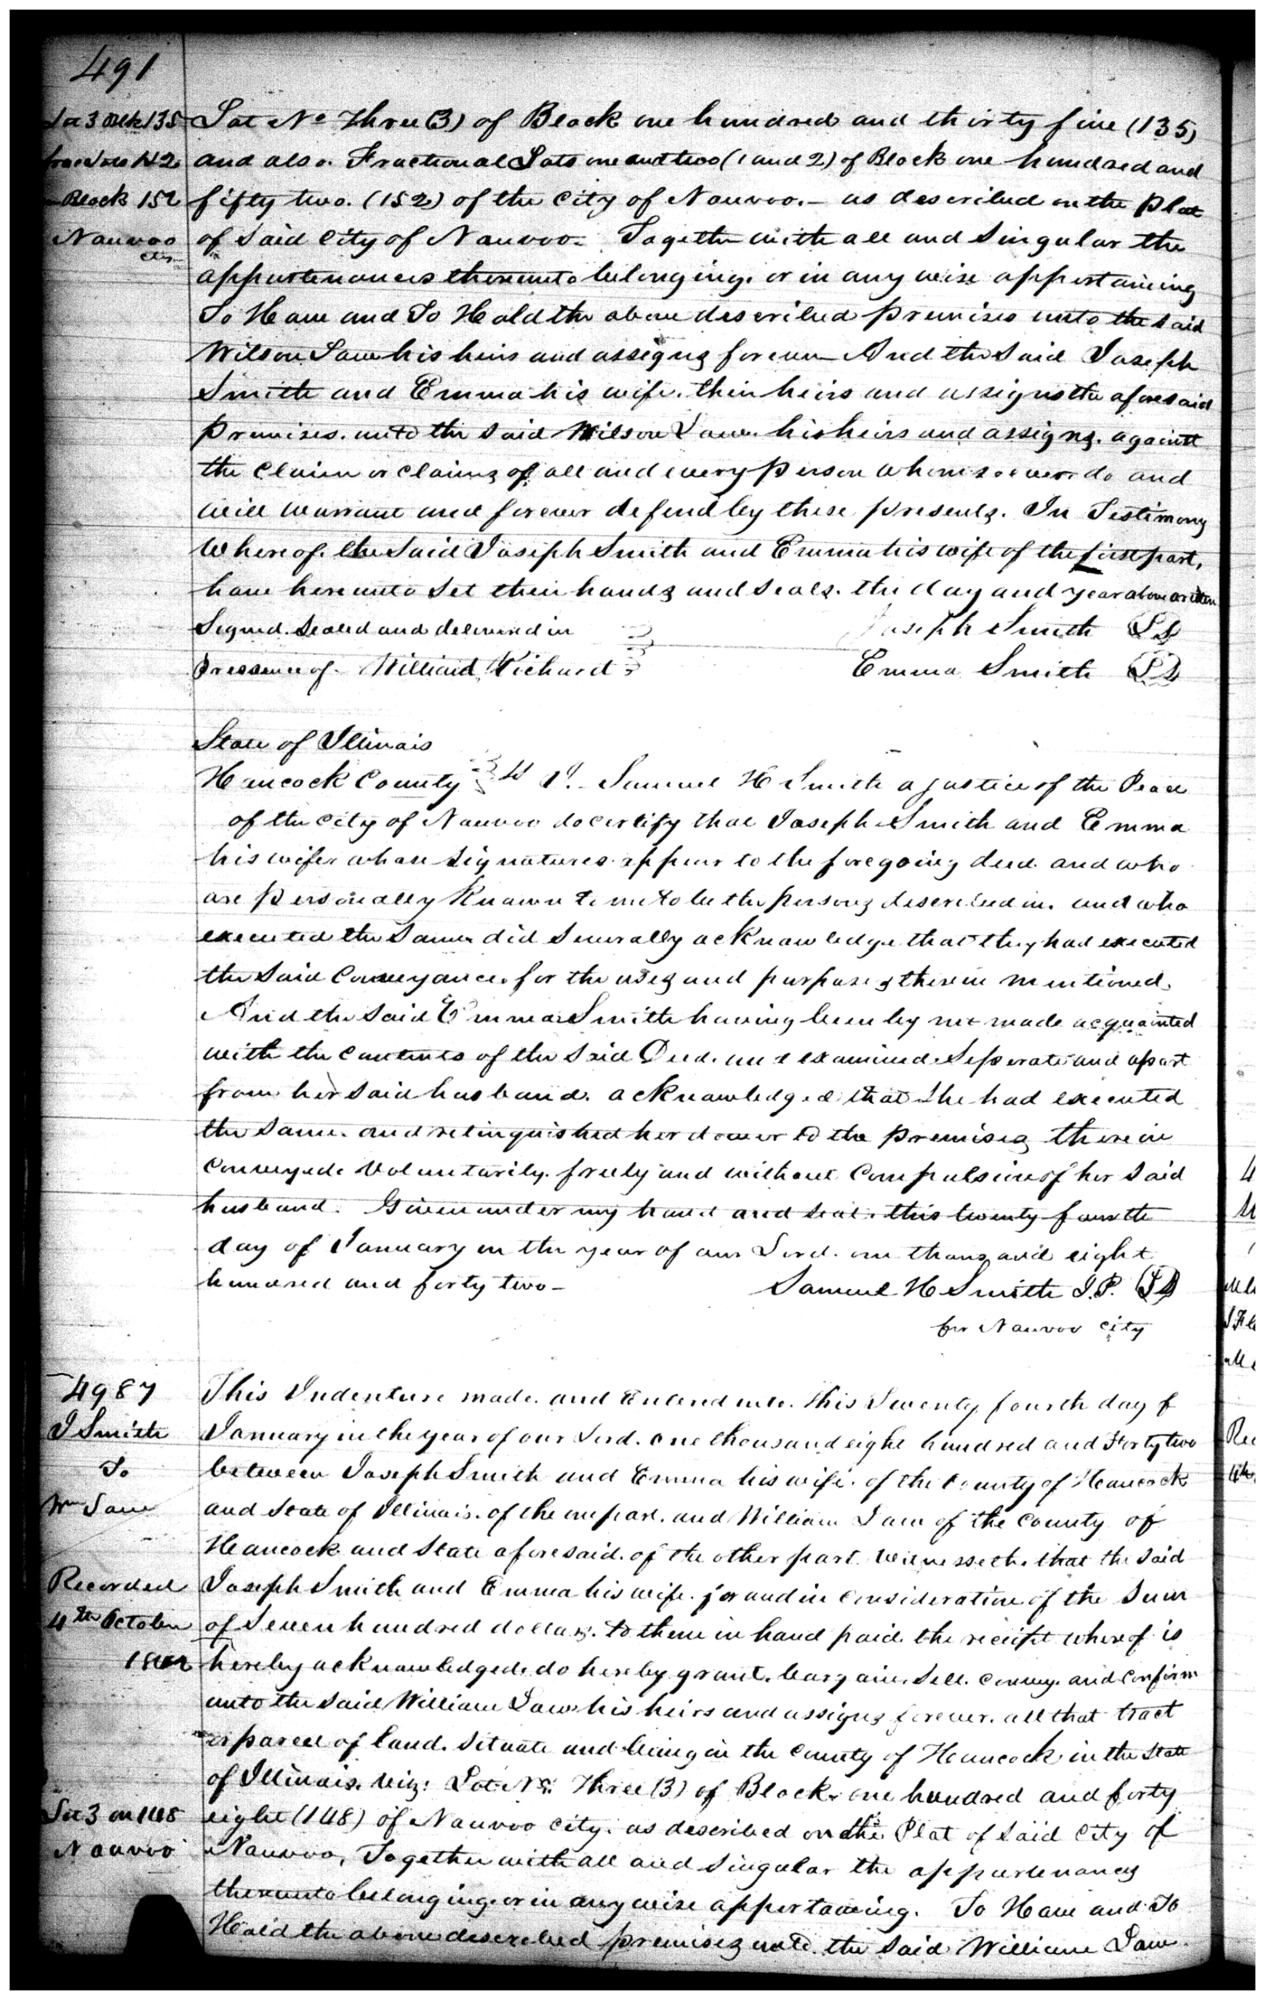 491
Lot 3 Blk 135
frac Lots 1 & 2
Block 152
Nauvoo
City
Lot No Three (3) of Block one hundred and thirty five (135)
and also. Fractional Lots one and two (1 and 2) of Block one hundred and
fifty two. (152) of the City of Nauvoo. - as described on the Plat
of said City of Nauvoo. Together with all and Singular the
appurtenances thereunto belonging. or in any wise appertaining
To Have and To Hold the above described premises unto the said
Wilson Law his heirs and assigns forever And the said Joseph
Smith and Emma his wife. their heirs and assigns the aforesaid
premises. unto the said Wilson Law. his heirs and assigns. against
the claim or claims of all and every person whomsoever. do and
will warrant and forever defend by these presents. In Testimony
Whereof. the said Joseph Smith and Emma his wife of the first part,
have hereunto set their hands and seals. the day and year above written
Signed. Sealed and delivered in Joseph Smith LS
Presence of. Williard Richards Emma Smith LS
State of Illinois
Hancock County SS I. Samuel H Smith a justice of the Peace
of the City of Nauvoo do certify that Joseph Smith and Emma
his wife whose signatures appear to the foregoing deed and who
are personally known to me to be the persons described in. and who
executed the same. did severally acknowledge that they had executed
the said Conveyance. for the uses and purposes therein mentioned.
And the said Emma Smith having been by me made acquainted
with the contents of the said Deed. and examined Seperate and apart
from her said husband. acknowledged that she had executed
the same. and relinquished her dower to the premises therein
conveyed. Voluntarily. freely and without Compulsion of her said
husband. Given under my hand and seal. this twenty fourth
day of January in the year of our Lord. one thousand eight
hundred and forty two - Samuel H Smith J.P. LS
for Nauvoo City
4987
J Smith
To
Wm Law
Recorded
4th October
1842
Lot 3 on 148
Nauvoo
This Indenture made. and Entered into. this Twenty fourth day of
January in the year of our Lord. one thousand eight hundred and Forty two
between Joseph Smith and Emma his wife. of the County of Hancock
and State of Illinois. of the one part. and William Law of the County of
Hancock and State aforesaid. of the other part. Witnesseth. that the said
Joseph Smith and Emma his wife. for and in consideration of the Sum
of Seven hundred dollars. to them in hand paid. the receipt whereof is
hereby acknowledged. do hereby grant. bargain. Sell. Convey. and Confirm
unto the said William Law his heirs and assigns forever. all that tract
or parcel of land. situate and being in the County of Hancock in the State
of Illinois. Viz: Lot No. Three (3) of Block one hundred and forty
eight (148) of Nauvoo City. as described on the Plat of said City of
Nauvoo, Together with all and Singular the appurtenances
thereunto belonging. or in any wise appertaining. To Have and To
Hold the above described premises unto the said William Law.